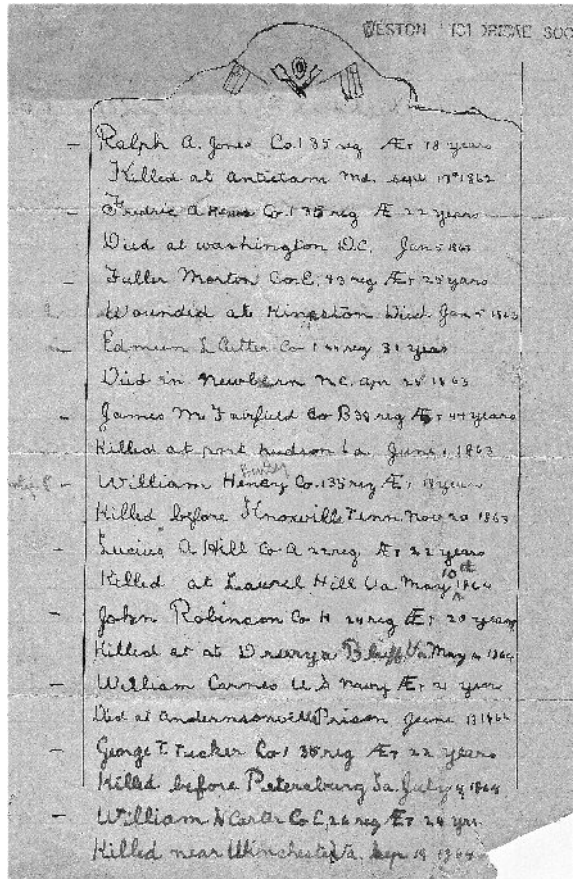 WESTON HISTORICAL SOC
Ralph A. Jones Co. I 35 reg Æt 18 years
Killed at Antietam Md. Sept 17th 1862
Fredric A Co. I 35 reg Æ 22 years
Died at Washington D.C. Jan 5 1863
Fuller Morton Co. E. 43 reg Æt 25 years
Wounded at Kingston Died Jan 5 1863
Edmun L Cutter Co I 44 reg 31 years
Died in Newbern N.C. Apr 28 1863
James M. Fairfield Co B 38 reg Æt 44 years
Killed at port hudson La June 1863
William Henry Co. I 35 reg Æt 18 years
Killed before Knoxvill Tenn. Nov 20 1863
Lucius A Hill Co A 22 reg Æt 22 years
Killed at Laurel Hill Va May 10th 1864
John Robinson Co H 24 reg Æt 20 years
Killed at at Drewrya Bluff Va May 1864
William Carnes U S Navy Æt 21 years
Died at Andermsonvill Prison June 13 1864
George T. Tucker Co I 35 reg Æt 22 years
Killed before Petersburg Va. July 1864
William H Carter Co E, 26 reg Æt 24 yrs.
Killed near Winchester Va. Sep 19 1864